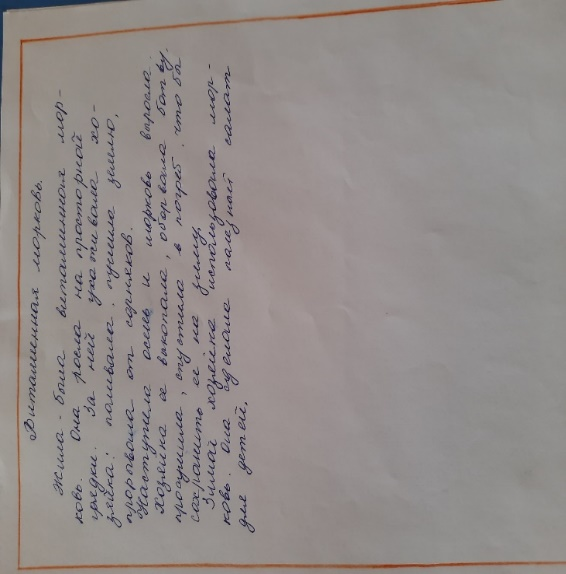 Витаминная морковь.
Жила - была витаминная мор-
ковь. Она росла на просторной
грядки. За ней ухаживала хо-
зяйка: поливала, пушила землю,
прорывала от сорняков.
Наступила осень и морковь выросла.
Хозяйка её выкопала, оборвала ботву,
просушила, спустила в погреб. что бы
сохранить её на зиму.
Зимой хозяйка использовала мор-
ковь. Она сделала полезный салат
для детей.